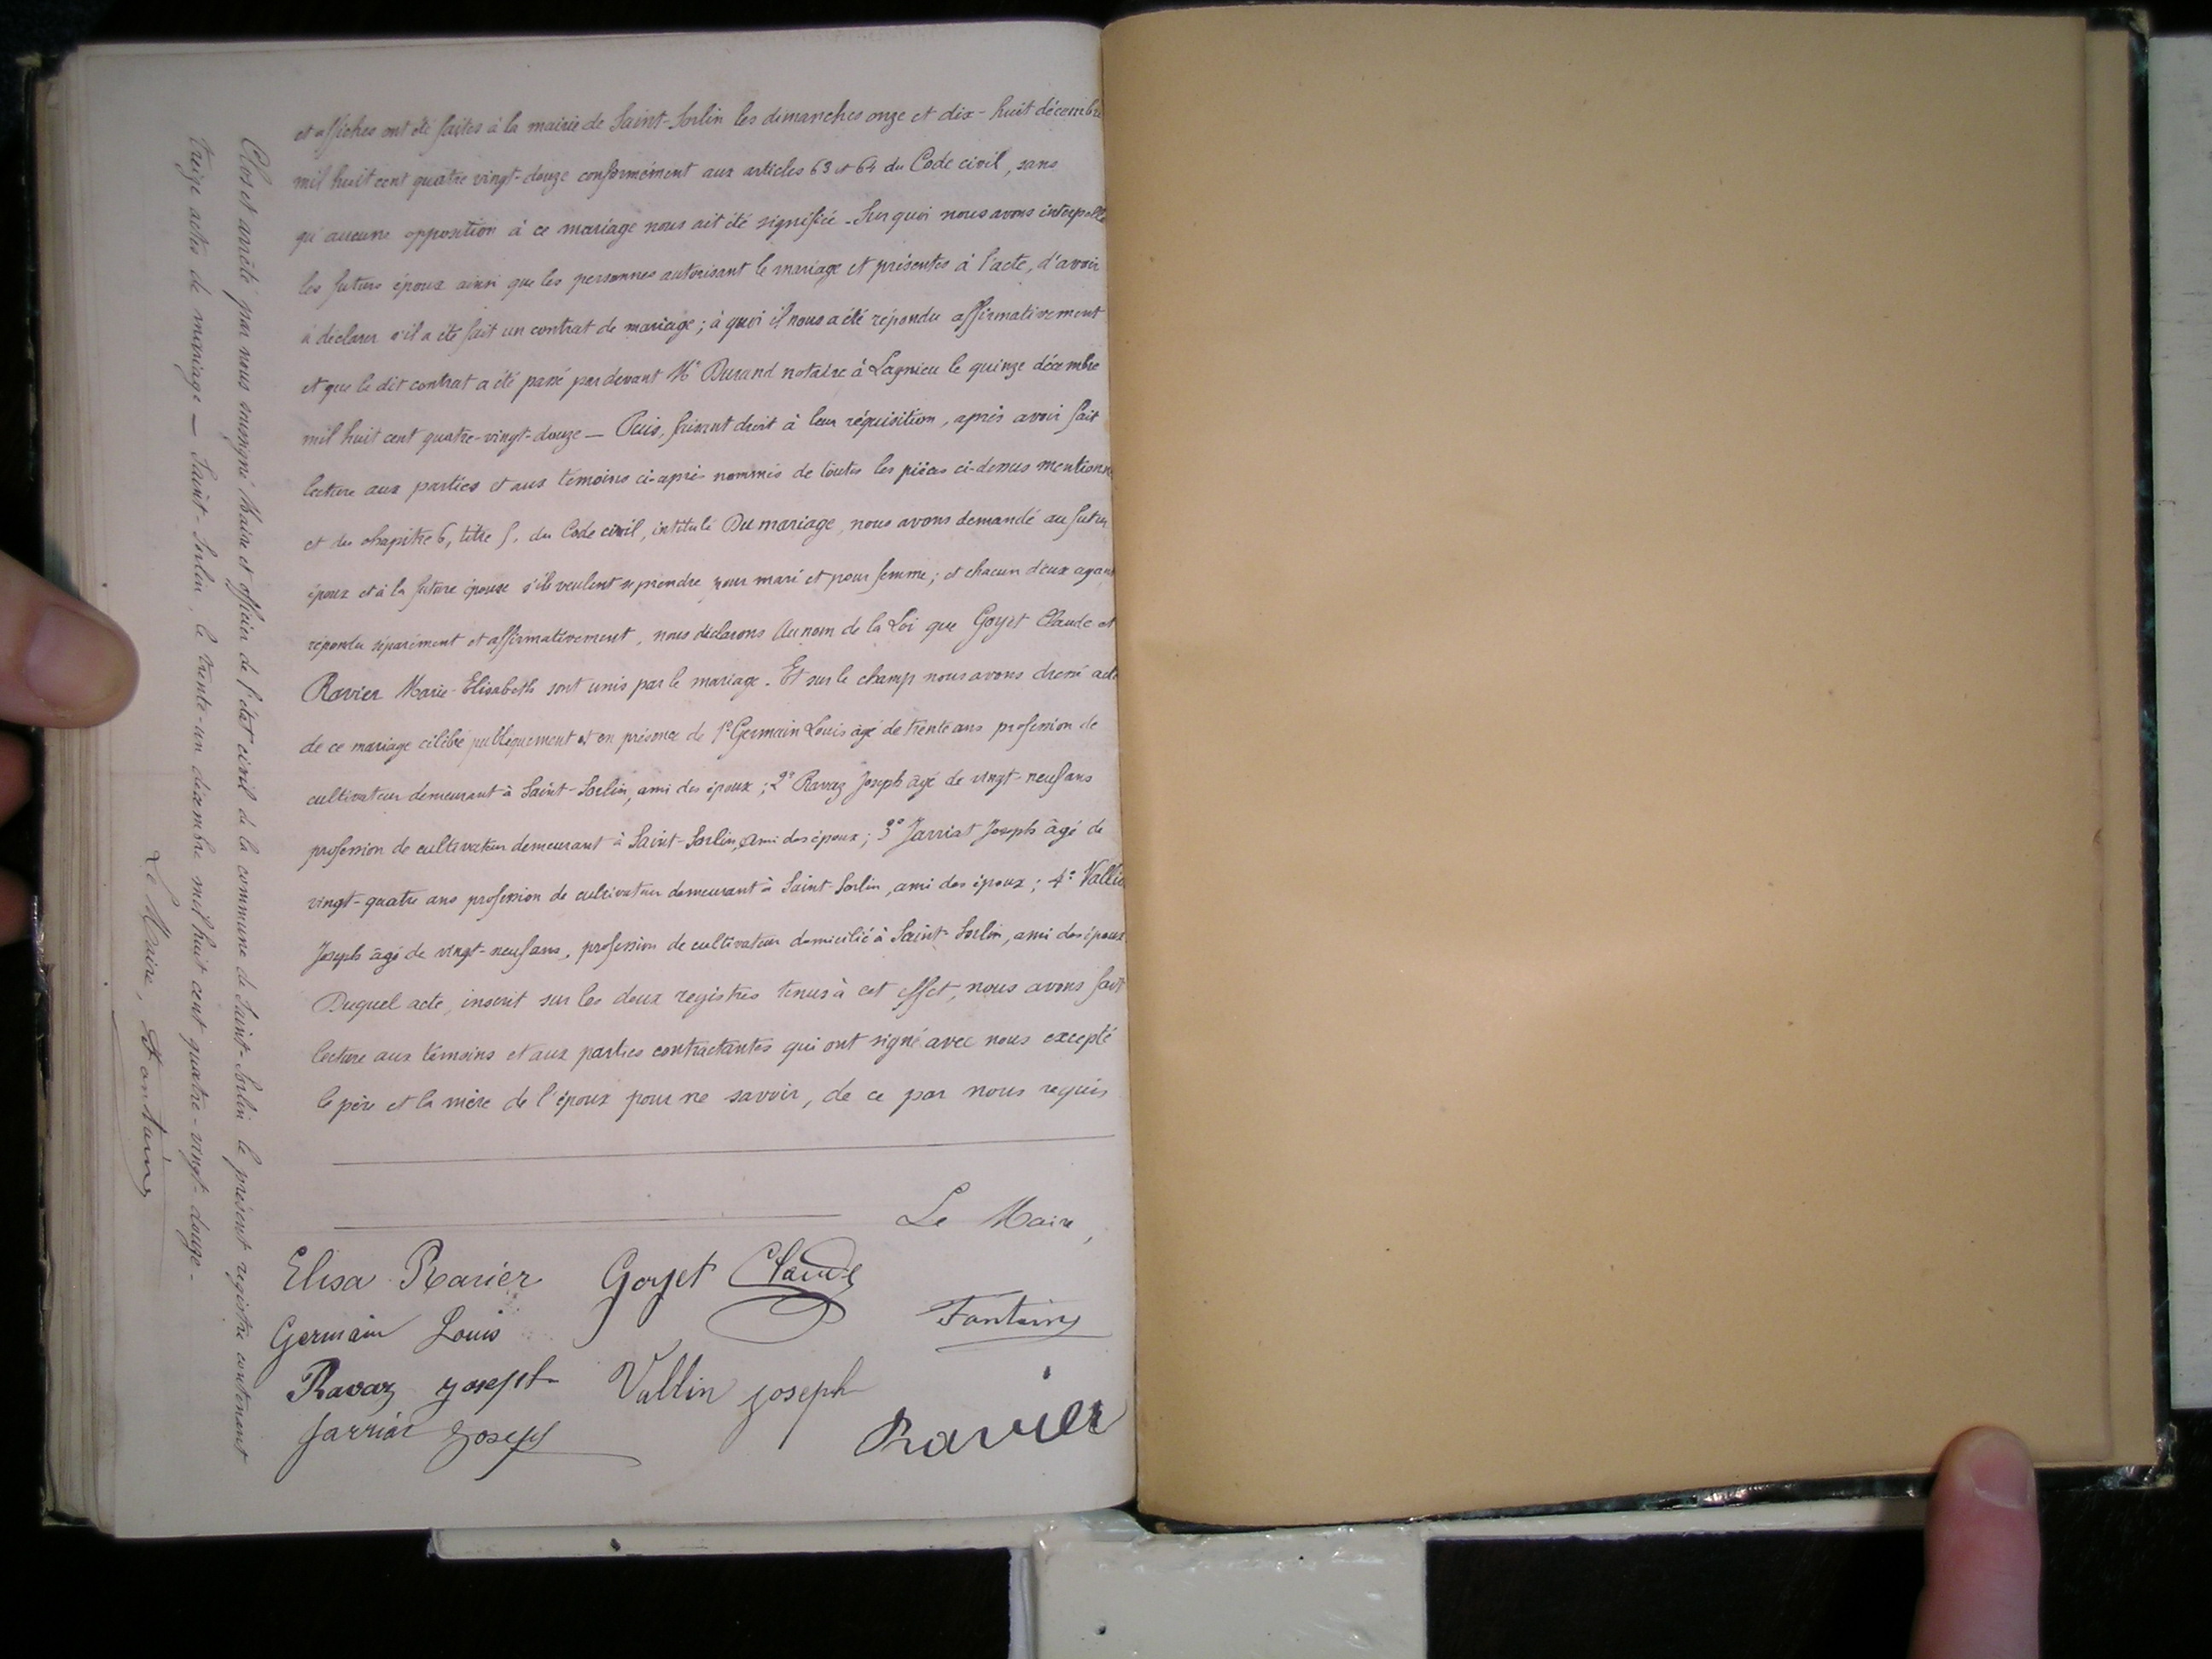 et affiches ont été faites à la mairie de Saint-Sorlin les dimanches onze et dix-huit décembre
mil huit cent quatre vingt-douze conformément aux articles 63 et 64 du Code civil, sans
qu'aucune opposition à ce mariage nous ait été signifiée - Sur quoi nous avons interpellé
les futurs époux ainsi que les personnes autorisant le mariage et présentes à l'acte, d'avoir
à déclarer s'il a été fait un contrat de mariage; à quoi il nous a été répondu affirmativement
et que le dit contrat a été passé par devant Me Durand notaire à Lagnieu le quinze décembre
mil huit cent quatre-vingt-douze — Puis, faisant droit à leur réquisition, après avoir fait
lecture aux parties et aux témoins ci-après nommés de toutes les pièces ci-dessus mentionn
et du chapitre 6, titre 5, du Code civil, intitulé Du mariage, nous avons demandé au futur
époux et à la future épouse s'ils veulent se prendre pour mari et pour femme; et chacun d'eux ayant
répondu séparément et affirmativement, nous déclarons Au nom de la Loi que Goyet Claude et
Ravier Marie-Elisabeth sont unis par le mariage. Et sur le champ nous avons dressé acte
de ce mariage célébré publiquement et en présence de 1° Germain Louis âgé de trente ans profession de
cultivateur demeurant à Saint-Sorlin, ami des époux; 2° Ravaz Joseph âgé de vingt-neuf ans
profession de cultivateur demeurant à Saint-Sorlin, ami des époux; 3° Jarriat Joseph âgé de
vingt-quatre ans profession de cultivateur demeurant à Saint-Sorlin, ami des époux; 4° Vallin
Joseph âgé de vingt-neuf ans, profession de cultivateur domicilié à Saint-Sorlin, ami des époux
Duquel acte, inscrit sur les deux registres tenus à cet effet, nous avons fait
lecture aux témoins et aux parties contractantes qui ont signé avec nous excepté
le père et la mère de l'époux pour ne savoir, de ce par nous requis
Le Maire,
Elisa Ravier Goyet Claude
Fontaine
Germain Louis
Ravaz Joseph Vallin Joseph
Ravier
Jarriat Joseph
Clos et arrêté par nous soussigné Maire et officier de l'état civil de la commune de Saint-Sorlin le présent registre contenant
treize actes de mariage — Saint-Sorlin, le trente-un décembre mil huit cent quatre-vingt-douze -
Le Maire, Fontaine